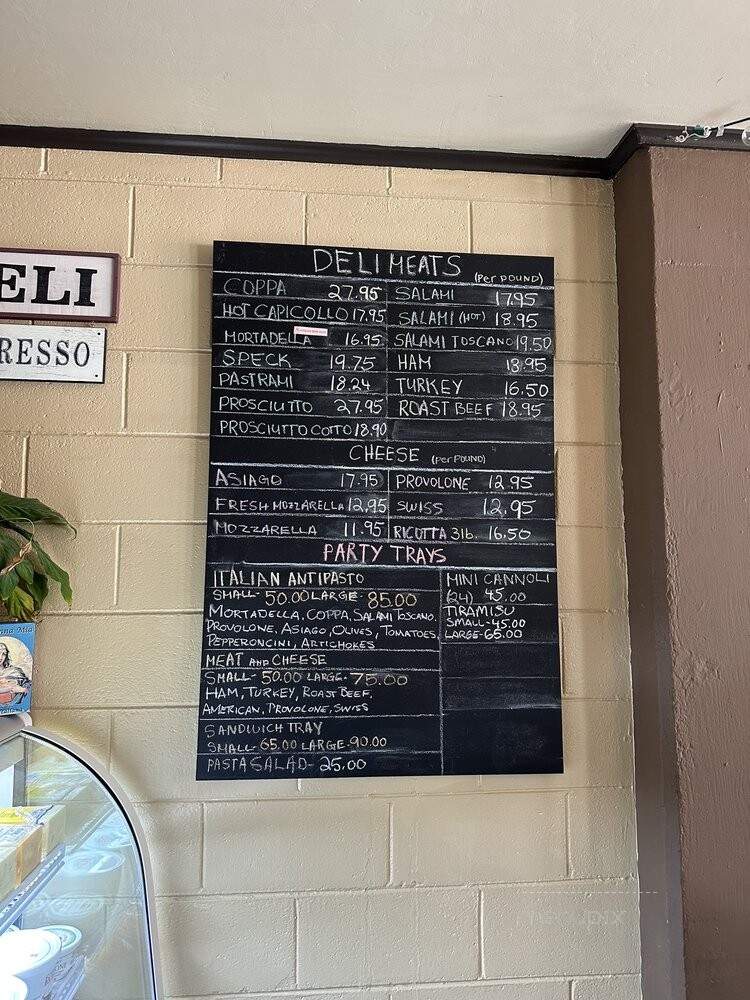 ELI
RESSO
DELI MEATS (PER POUND)
COPPA 27.95
HOT CAPICOLLO 17.95
MORTADELLA 16.95
SPECK 19.75
PASTRAMI 18.24
PROSCIUTTO 27.95
PROSCIUTTO COTTO 18.90
SALAMI 17.95
SALAMI (HOT) 18.95
SALAMI TOSCANO 19.50
HAM 18.95
TURKEY 16.50
ROAST BEEF 18.95
CHEESE (PER POUND)
ASIAGO 17.95
FRESH MOZZARELLA 12.95
MOZZARELLA 11.95
PROVOLONE 12.95
SWISS 12.95
RICOTTA 3lb. 16.50
PARTY TRAYS
ITALIAN ANTIPASTO
SMALL- 50.00 LARGE- 85.00
MORTADELLA, COPPA, SALAMI TOSCANO,
PROVOLONE, ASIAGO, OLIVES, TOMATOES,
PEPPERONCINI, ARTICHOKES
MEAT AND CHEESE
SMALL- 50.00 LARGE- 75.00
HAM, TURKEY, ROAST BEEF,
AMERICAN, PROVOLONE, SWISS
SANDWICH TRAY
SMALL- 65.00 LARGE- 90.00
PASTA SALAD- 25.00
MINI CANNOLI
(24) 45.00
TIRAMISU
SMALL- 45.00
LARGE- 65.00